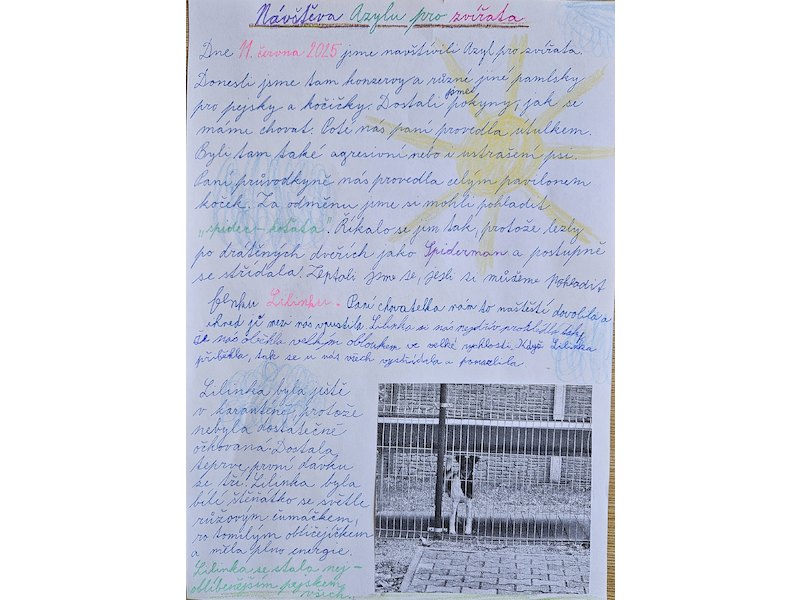 Návštěva Azylu pro zvířata
Dne 11. června 2025 jsme navštívili Azyl pro zvířata.
Donesli jsme tam konzervy a různé jiné pamlsky
pro pejsky a kočičky. Dostali jsme pokyny, jak se
máme chovat. Poté nás paní provedla útulkem.
Byli tam také agresivní nebo i ustrašení psi.
Paní průvodkyně nás provedla celým pavilonem
koček. Za odměnu jsme si mohli pohladit
„spider-koťata". Říkalo se jim tak, protože lezly
po drátěných dveřích jako Spiderman a postupně
se střídala. Zeptali jsme se, jesli si můžeme pohladit
fenku Lilinku. Paní chovatelka nám to naštěstí dovolila a
ihned ji mezi nás vpustila. Lilinka si nás nejdřív prohlídla tak,
že nás oběhla velkým obloukem ve velké rychlosti. Když Lilinka
přiběhla, tak se u nás všech vystřídala a pomazlila
Lilinka byla ještě
v karanténě, protože
nebyla dostatečně
očkovaná. Dostala
teprve první dávku
ze tří. Lilinka byla
bílí štěňátko se světle
růžovým čumáčkem,
roztomilým obličejíčkem
a měla plno energie.
Lilinka se stala nej-
oblíbenějším pejskem
všech.